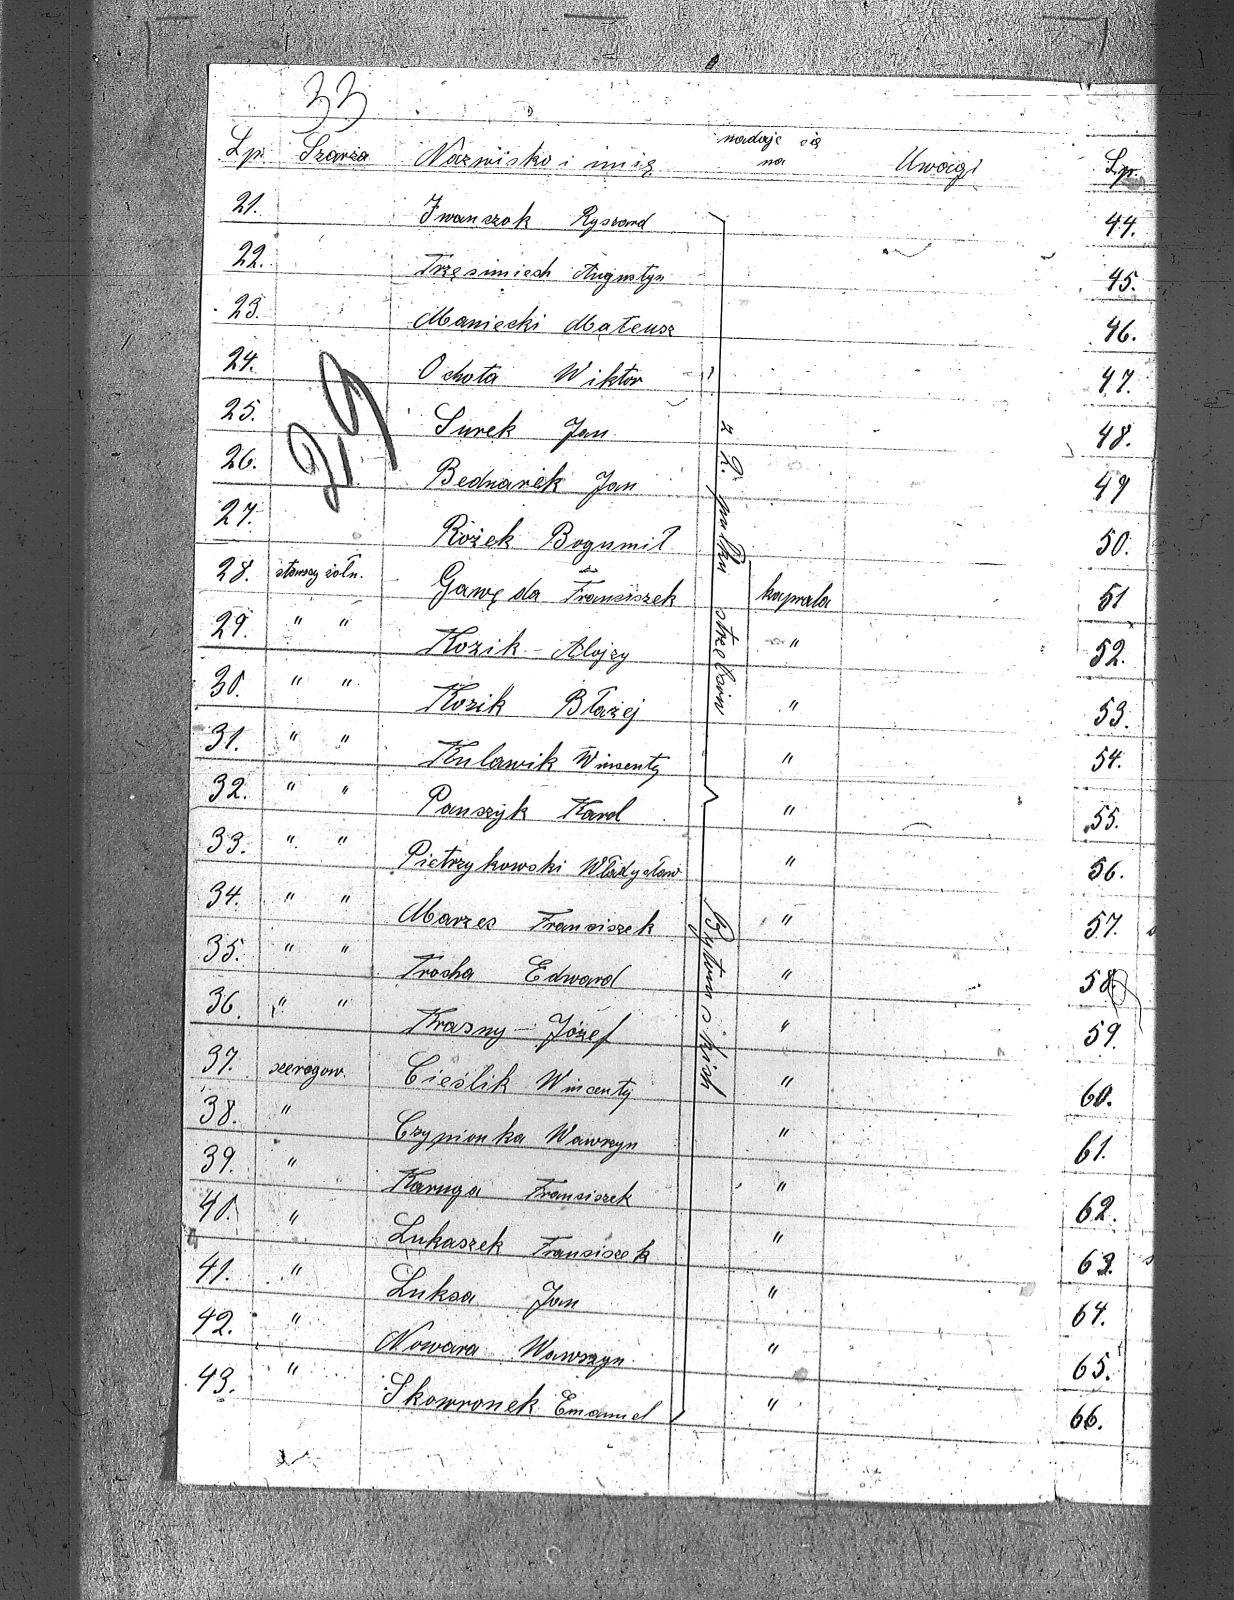 33
Lp. Szarża Nazwisko i imię nadaje się na Uwagi Lp.
21. Iwanczok Ryszard 44.
22. Trzęsimiech Augustyn 45.
23. Maniecki Mateusz 46.
24. Ochota Wiktor 47.
29
25. Surek Jan 48.
26. Bednarek Jan 49
27. Rożek Bogumił 50.
28. starszy żołn. Gawęda Franciszek kaprala 51
29. " " Kozik - Alojzy " 52.
30. " " Kozik Błażej " 53.
31. " " Kulawik Wincenty " 54.
32. " " Panszyk Karol " 55.
33. " " Pietrzykowski Władysław " 56.
34. " " Marzec Franciszek " 57.
35. " " Trocha Edward " 58.
36. " " Krasny - Józef " 59.
37. szeregow. Cieślik Wincenty " 60.
38. " Czypionka Wawrzyn " 61.
39. " Karuga Franciszek " 62.
40. " Lukaszek Franciszek " 63.
41. " Luksa Jan " 64.
42. " Nowara Wawrzyn " 65.
43. " Skowronek Emanuel " 66.
z 2. pułku strzelców
Bytomskich